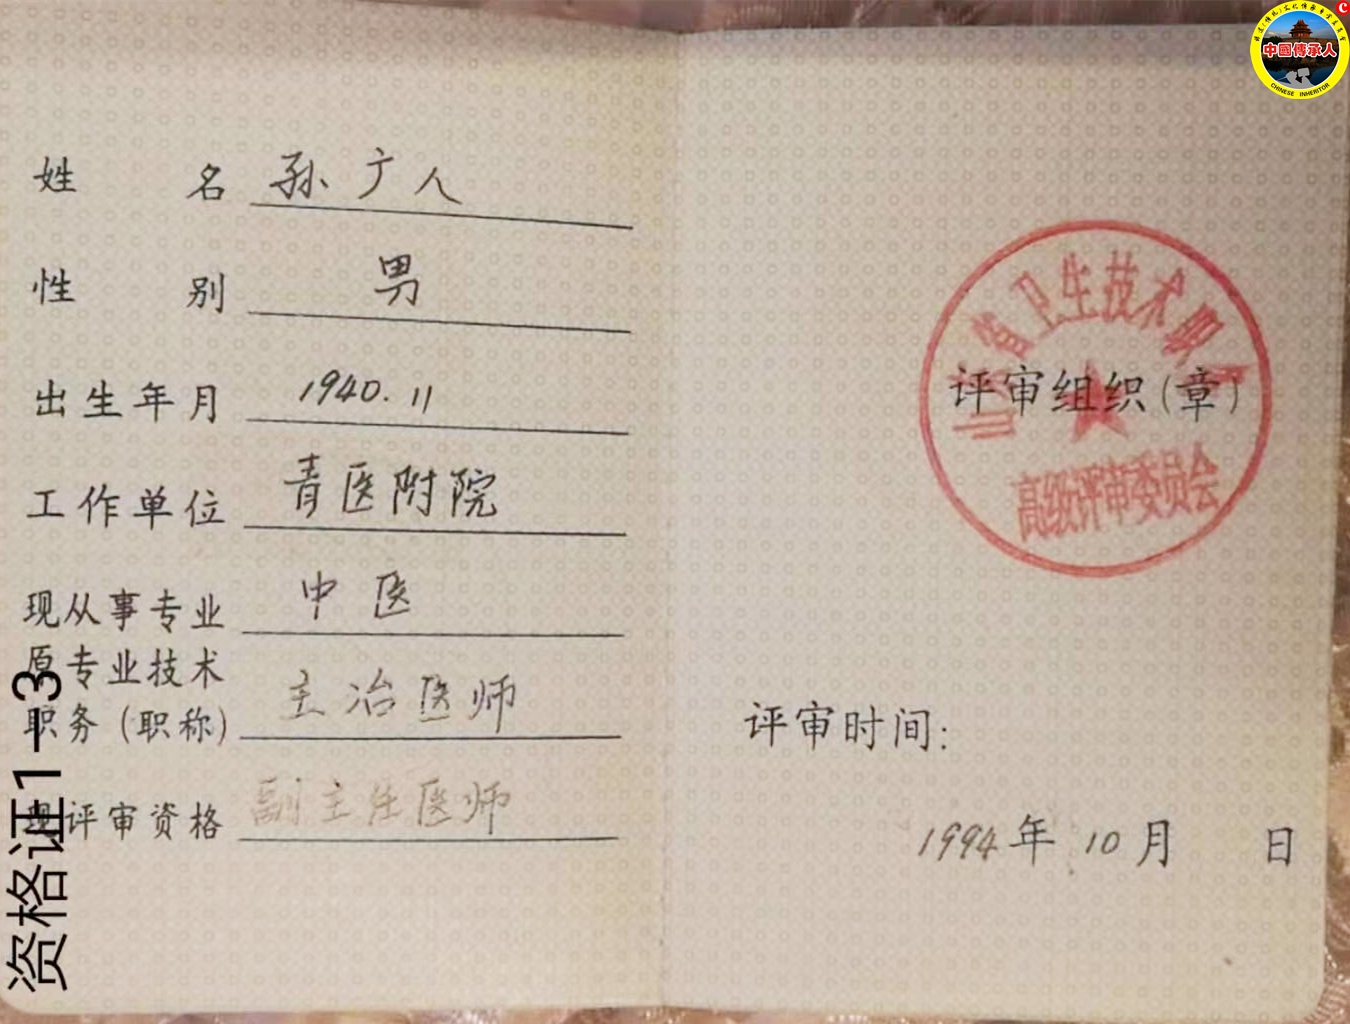 姓名 孙广人
性别 男
出生年月 1940.11
工作单位 青医附院
现从事专业 中医
原专业技术
职务（职称） 主治医师
现评审资格 副主任医师
资格证1-3
山东省卫生技术职
高级评审委员会
评审组织（章）
评审时间：
1994年10月 日
中國傳承人
CHINESE INHERITOR
C